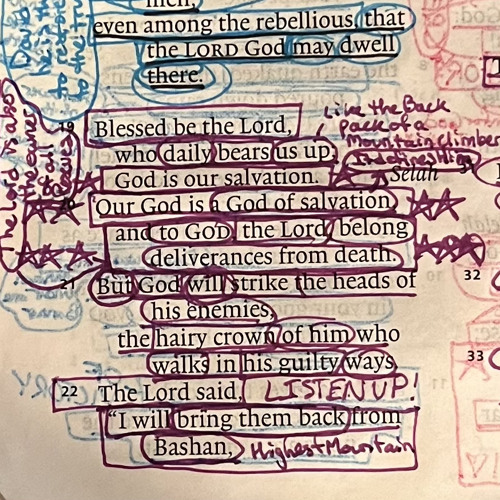 men,
even among the rebellious, that
the LORD God may dwell
there.
19 Blessed be the Lord,
who daily bears us up;
God is our salvation. Selah
Like the Back
Pack of a
Mountain Climber
The Lord is also
the owner
of all
20 Our God is a God of salvation,
and to GOD, the Lord, belong
deliverances from death.
21 But God will strike the heads of
his enemies,
the hairy crown of him who
walks in his guilty ways.
22 The Lord said, LISTEN UP!
"I will bring them back from
Bashan, Highest Mountain
32
33